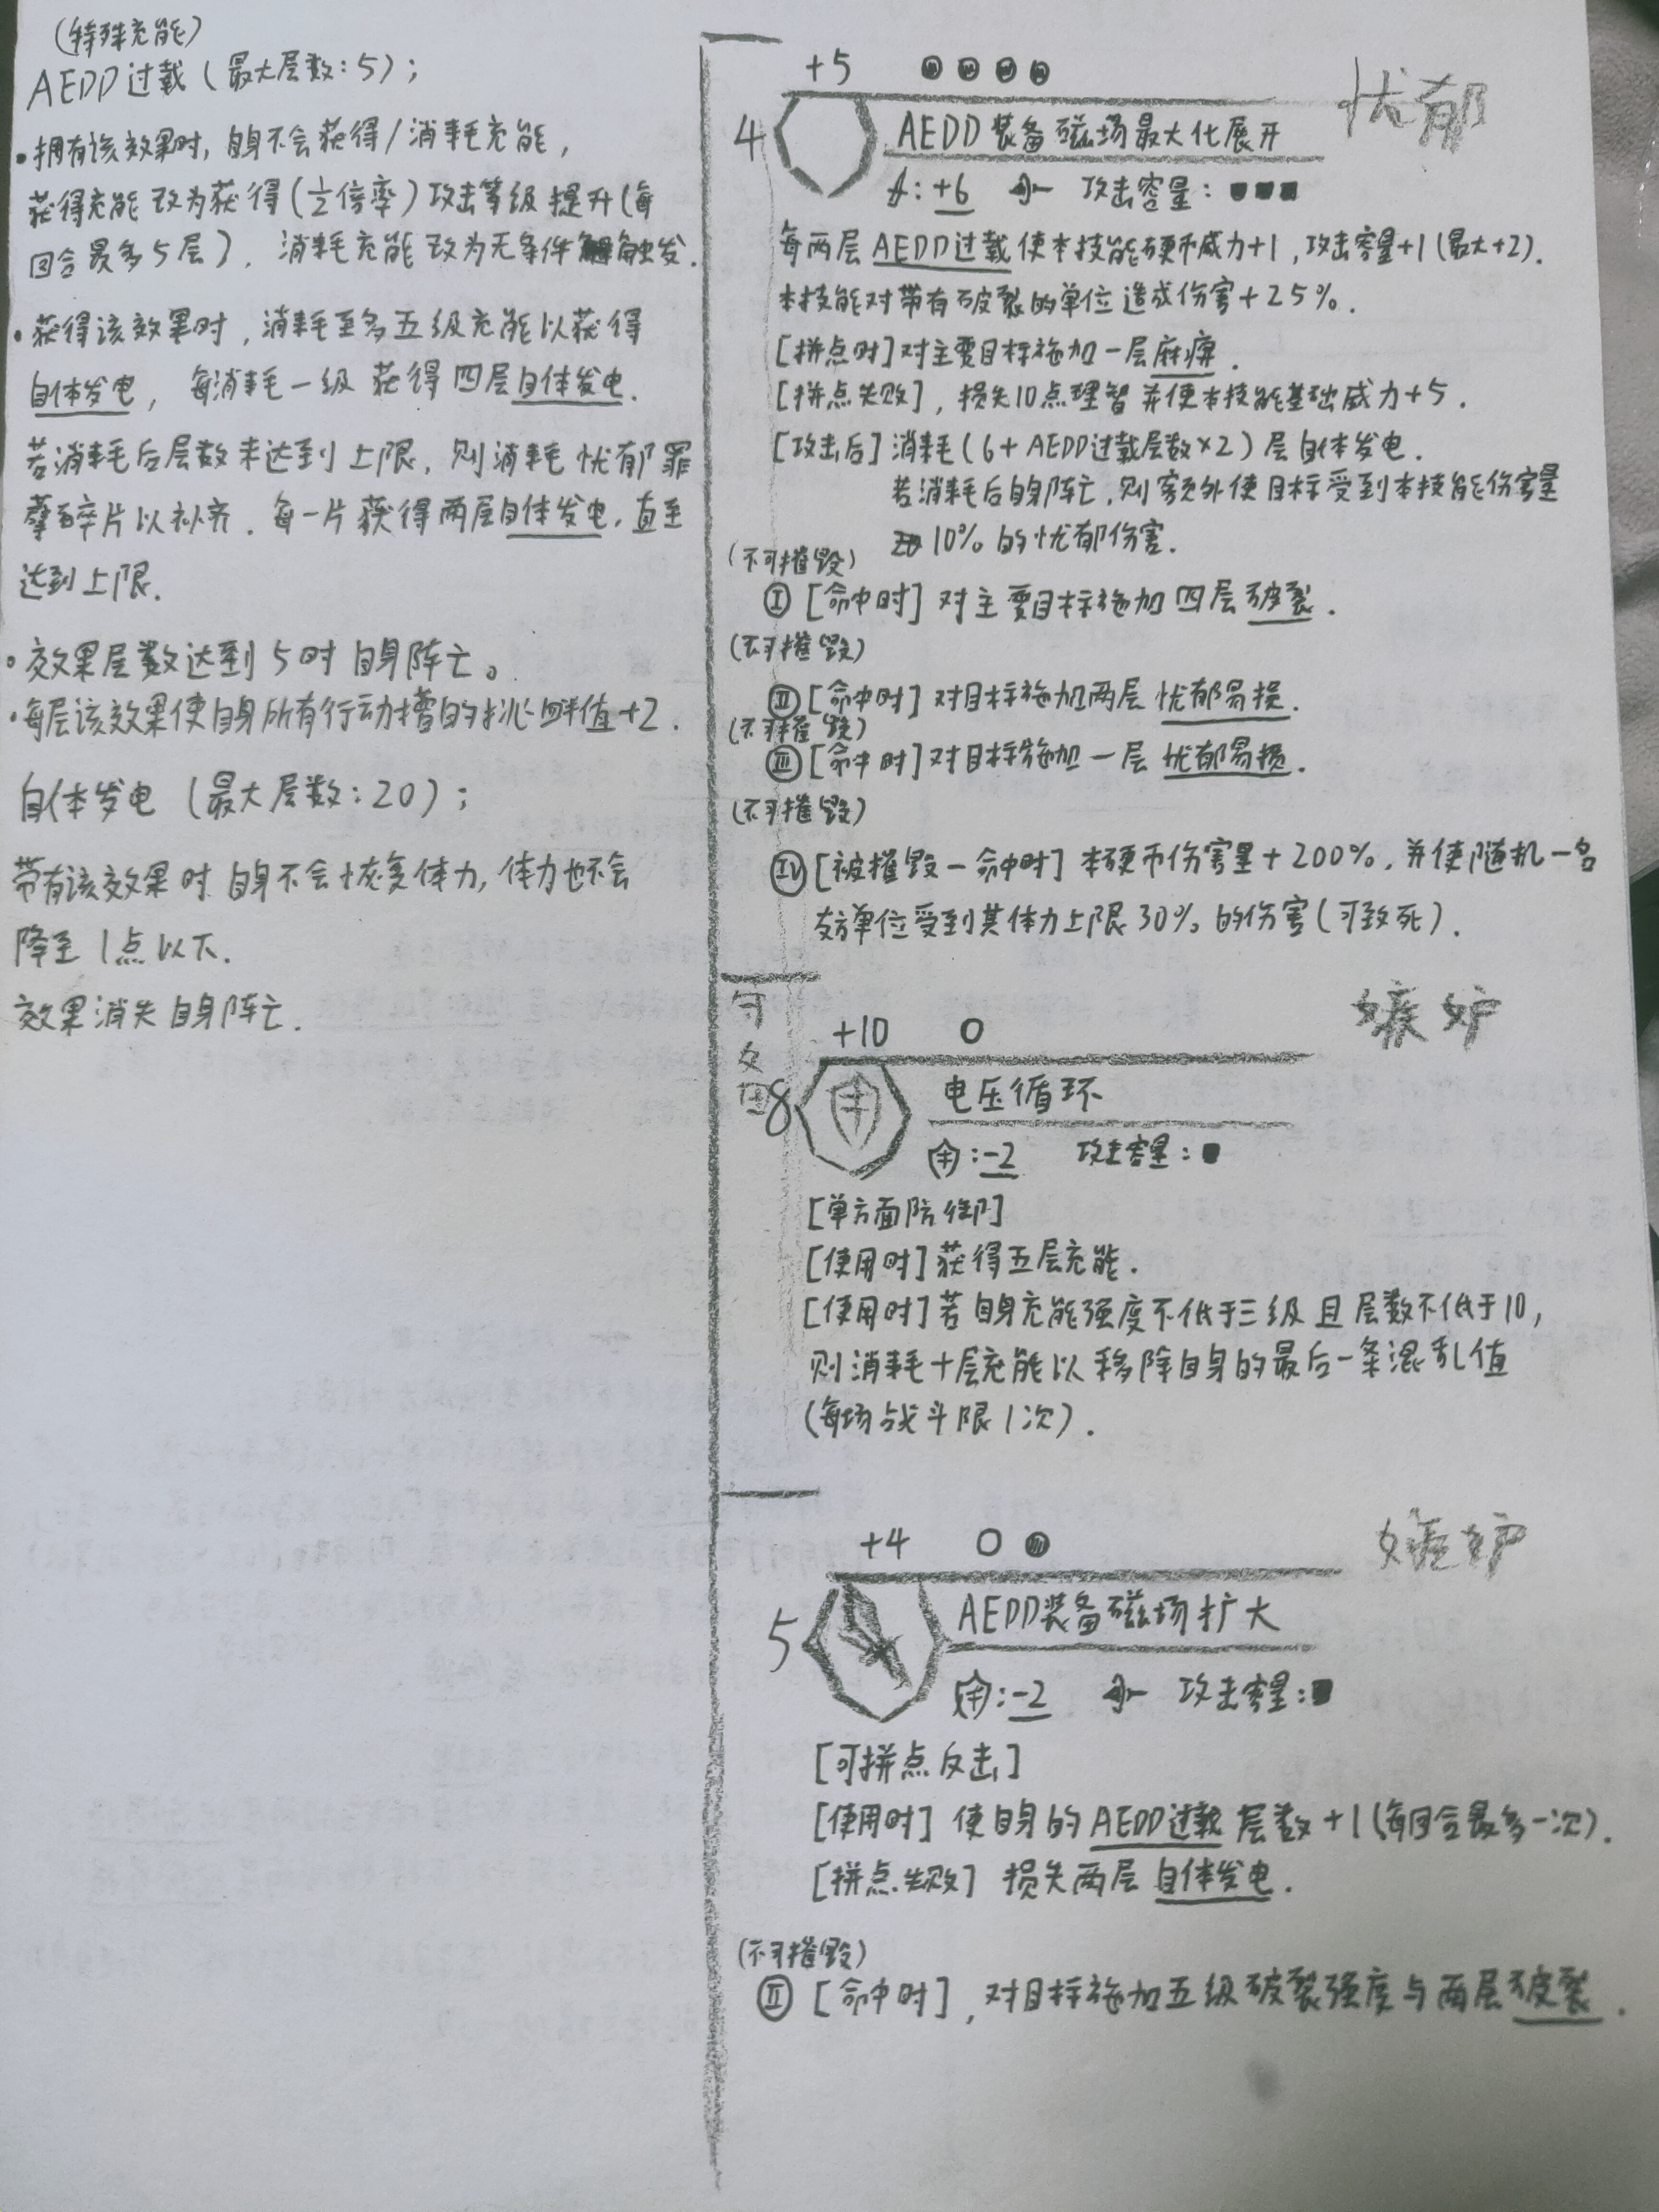 (特殊充能)
AEDD过载(最大层数:5);
•拥有该效果时,自身不会获得/消耗充能,
获得充能改为获得(½倍率)攻击等级提升(每
回合最多5层),消耗充能改为无条件触发.
•获得该效果时,消耗至多五级充能以获得
自体发电,每消耗一级获得四层自体发电.
若消耗后层数未达到上限,则消耗忧郁罪
孽碎片以补齐.每一片获得两层自体发电,直至
达到上限.
•效果层数达到5时自身阵亡。
•每层该效果使自身所有行动槽的挑衅值+2.
自体发电(最大层数:20);
带有该效果时自身不会恢复体力,体力也不会
降至1点以下.
效果消失自身阵亡.
+5
忧郁
4 AEDD装备磁场最大化展开
:+6 攻击容量:■■■
每两层AEDD过载使本技能硬币威力+1,攻击容量+1(最大+2).
本技能对带有破裂的单位造成伤害+25%.
[拼点时]对主要目标施加一层麻痹.
[拼点失败],损失10点理智并使本技能基础威力+5.
[攻击后]消耗(6+AEDD过载层数×2)层自体发电.
若消耗后自身阵亡,则额外使目标受到本技能伤害量
10%的忧郁伤害.
(不可摧毁)
Ⅰ [命中时]对主要目标施加四层破裂.
(不可摧毁)
Ⅱ [命中时]对目标施加两层忧郁易损.
(不可摧毁)
Ⅲ [命中时]对目标施加一层忧郁易损.
(不可摧毁)
Ⅳ [被摧毁-命中时]本硬币伤害量+200%,并使随机一名
友方单位受到其体力上限30%的伤害(可致死).
守备
嫉妒
+10 O
8 电压循环
:-2 攻击容量:■
[单方面防御]
[使用时]获得五层充能.
[使用时]若自身充能强度不低于三级且层数不低于10,
则消耗十层充能以移除自身的最后一条混乱值
(每场战斗限1次).
嫉妒
+4 O
5 AEDD装备磁场扩大
:-2 攻击容量:■
[可拼点反击]
[使用时]使自身的AEDD过载层数+1(每回合最多一次).
[拼点失败]损失两层自体发电.
(不可摧毁)
Ⅱ [命中时],对目标施加五级破裂强度与两层破裂.